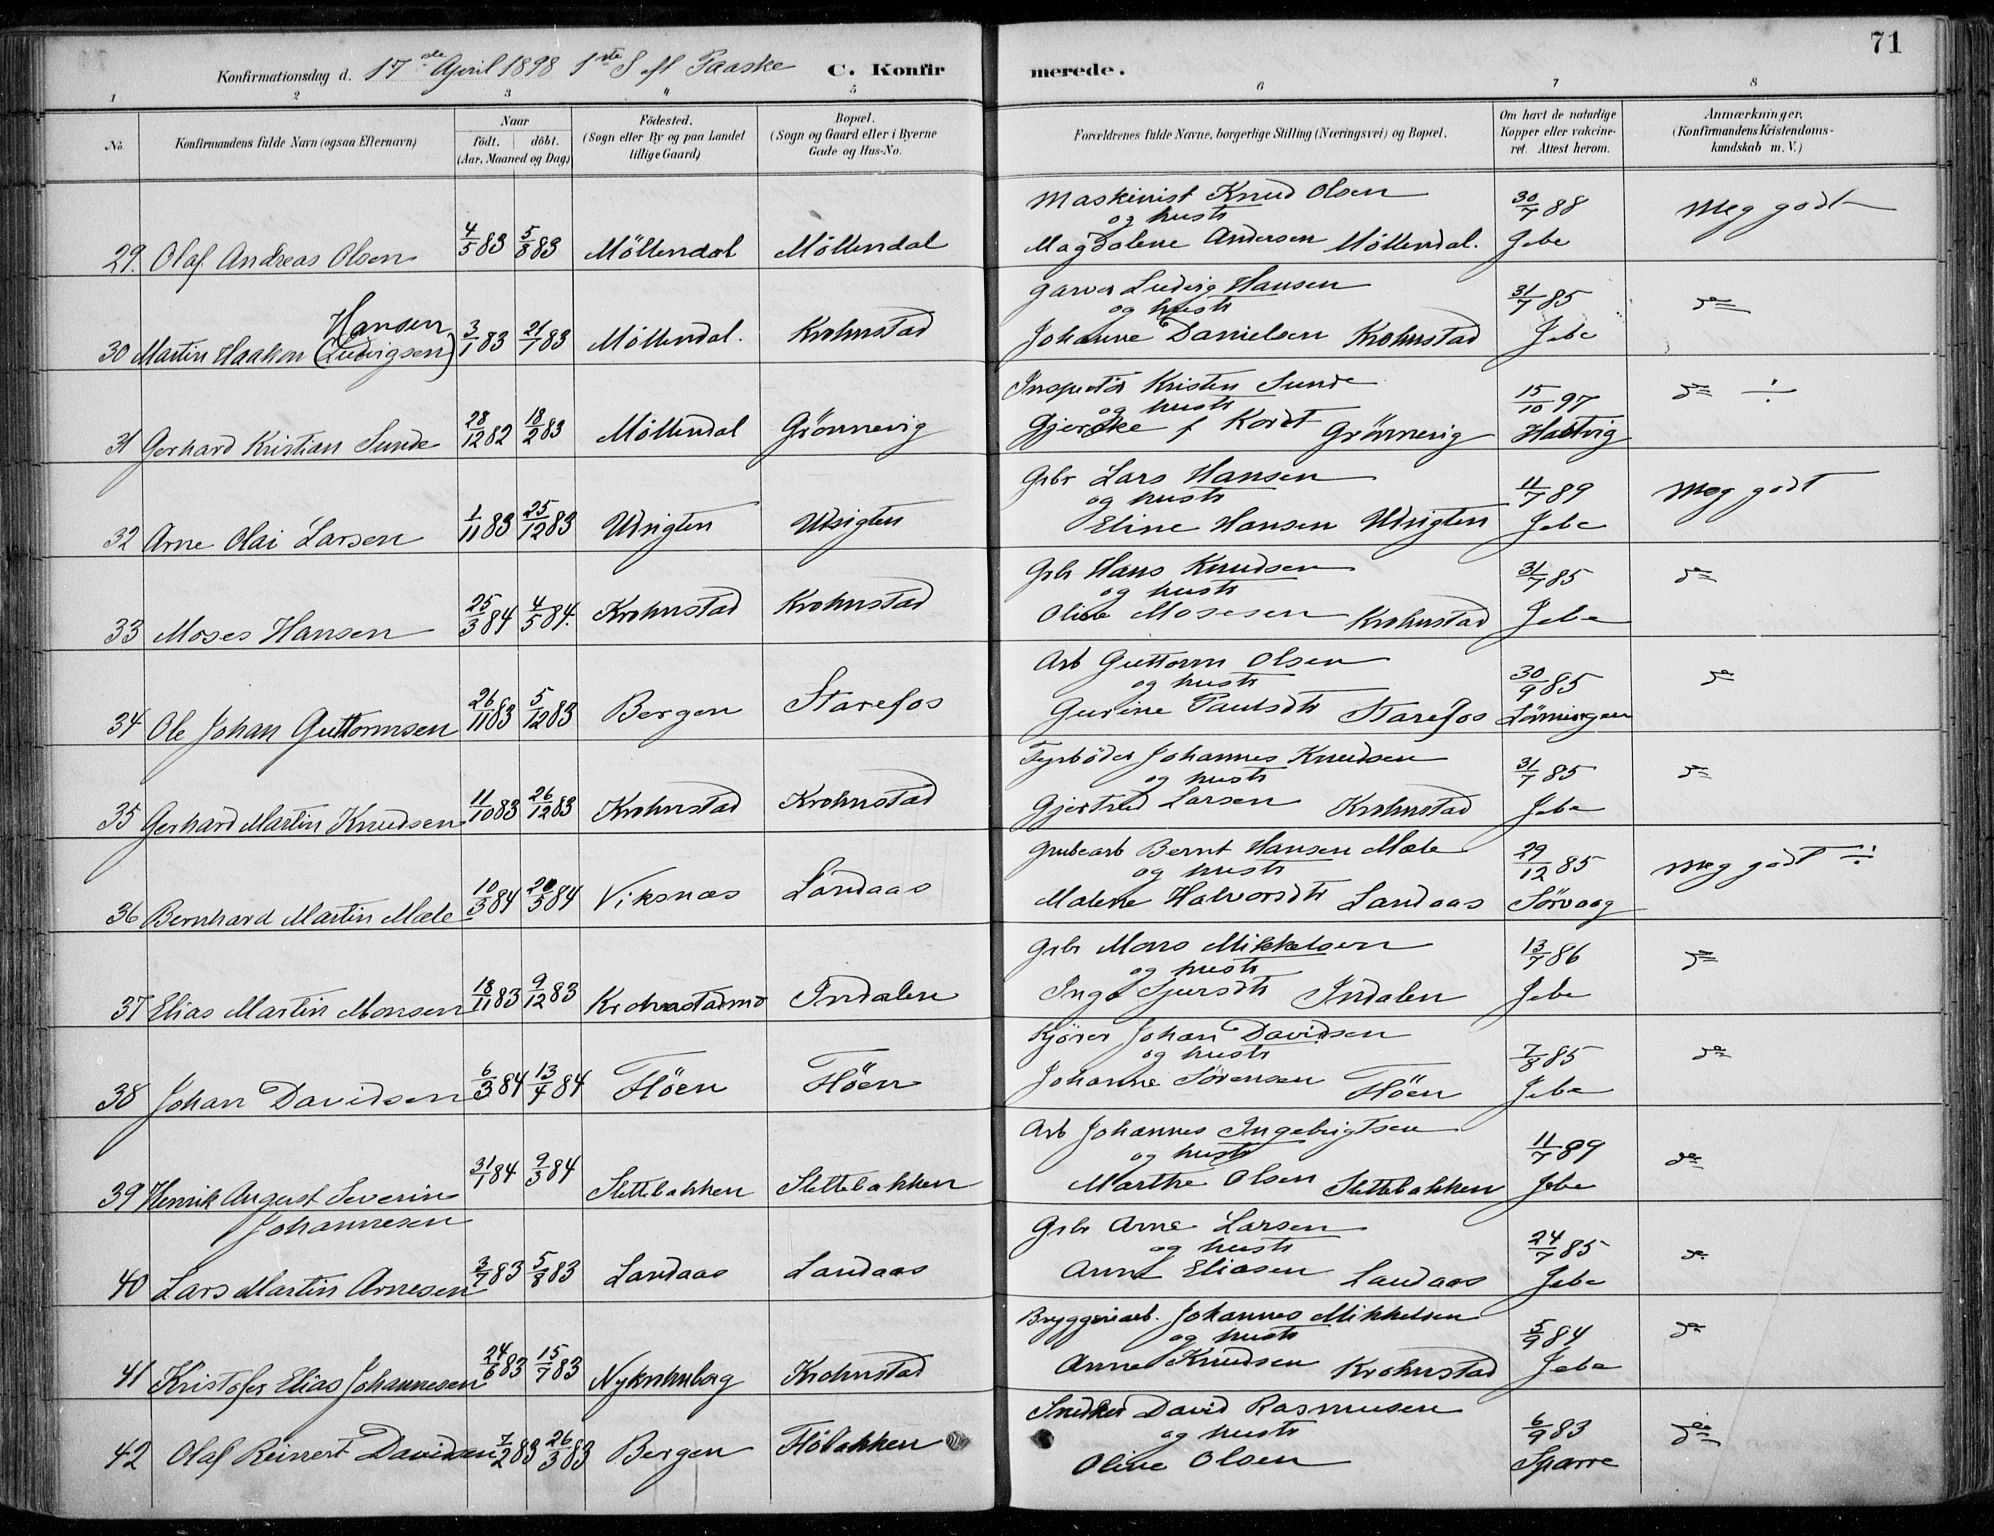 71
Konfirmationsdag d. 17de April 1898 1ste S eft Paaske C. Konfirmerede.
1 2 3 4 5 6 7 8
No
Konfirmandens fulde Navn (ogsaa Efternavn)
Naar
födt. döbt.
(Aar, Maaned og Dag)
Födested.
(Sogn eller By og paa Landet
tillige Gaard)
Bopæl.
(Sogn og Gaard eller i Byerne
Gade og Hus-No.
Forældrenes fulde Navne, borgerlige Stilling (Næringsvei) og Bopæl.
Om havt de naturlige
Kopper eller vakcine-
ret. Attest herom.
Anmærkninger,
(Konfirmandens Kristendoms-
kundskab m. V.)
Maskinist Knud Olsen 30/7 88 Meg godt
og hustr
29. Olaf Andreas Olsen 4/5 83 5/8 83 Möllendal Möllendal Magdalene Andersen Möllendal. Jebe
Garver Ludvig Hansen 31/7 85 do
Hansen og hustr
30 Martin Haakon (Ludvigsen) 3/1 83 21/1 83 Möllendal. Krohnstad Johanne Danielsen Krohnstad Jebe
Inspektör Kristen Sunde 15/10 97 do ÷
og hustr
31 Gerhard Kristian Sunde 28/12 82 18/2 83 Möllendal Grönnevig Gjerske f Kordt Grönnevig Haltvig
Grbr Lars Hansen 11/7 89 Meg godt
og hustr
32 Arne Olai Larsen 1/11 83 25/12 83 Udsigten Udsigten Eline Hansen Udsigten Jebe
Grbr Hans Knudsen 31/7 85 do
og hustr
33 Moses Hansen 25/3 84 4/5 84. Krohnstad Krohnstad Oline Mosesen Krohnstad Jebe
Arb Guttorm Olsen 30/9 85 do
og hustr
34 Ole Johan Guttormsen 26/11 83 5/12 83 Bergen Starefos Gurine Paulsdtr Starefos
Fyrböder Johannes Knudsen 31/7 85 do
og hustr
35 Gerhard Martin Knudsen 11/10 83 26/12 83 Krohnstad Krohnstad Gjertrud Larsen Krohnstad Jebe
Grubearb Bernt Hansen Mæle 29/12 85 Meg godt ÷
og hustr
36 Bernhard Martin Mæle 10/3 84 20/5 84 Viksnæs Landaas Malene Halvorsdtr Landaas Sörvaag
Grbr Mons Mikkelsen 13/7 86 do
og hustr
37 Elias Martin Monsen 18/11 83 9/12 83 Krohnstadmo Indalen Inga Sjursdtr Indalen Jebe
Kjörer Johan Davidsen 7/8 85 do
og hustr
38 Johan Davidsen 6/3 84 13/4 84 Flöen Flöen Johanne Sörensen Flöen Jebe
Arb Johannes Ingebrigtsen 11/7 89 do
og hustr
39 Henrik August Severin 31/1 84 9/3 84 Slettebakken Slettebakken Marthe Olsen Slettebakken Jebe
Johannesen
Grbr Arne Larsen 24/7 85 do
og hustr
40 Lars Martin Arnesen 3/7 83 5/8 83 Landaas Landaas Anne Eliasen Landaas Jebe
Bryggeriarb. Johannes Mikkelsen 5/9 84 do
og hustr
41 Kristofer Elias Johannesen 24/6 83 15/7 83 Nykrohnborg Krohnstad Anne Knudsen Krohnstad Jebe
Snedker David Rasmussen 6/9 83 do
og hustr
42 Olaf Reinert Davidsen 7/2 83 26/3 83 Bergen Flöbakken Oline Olsen Sparre